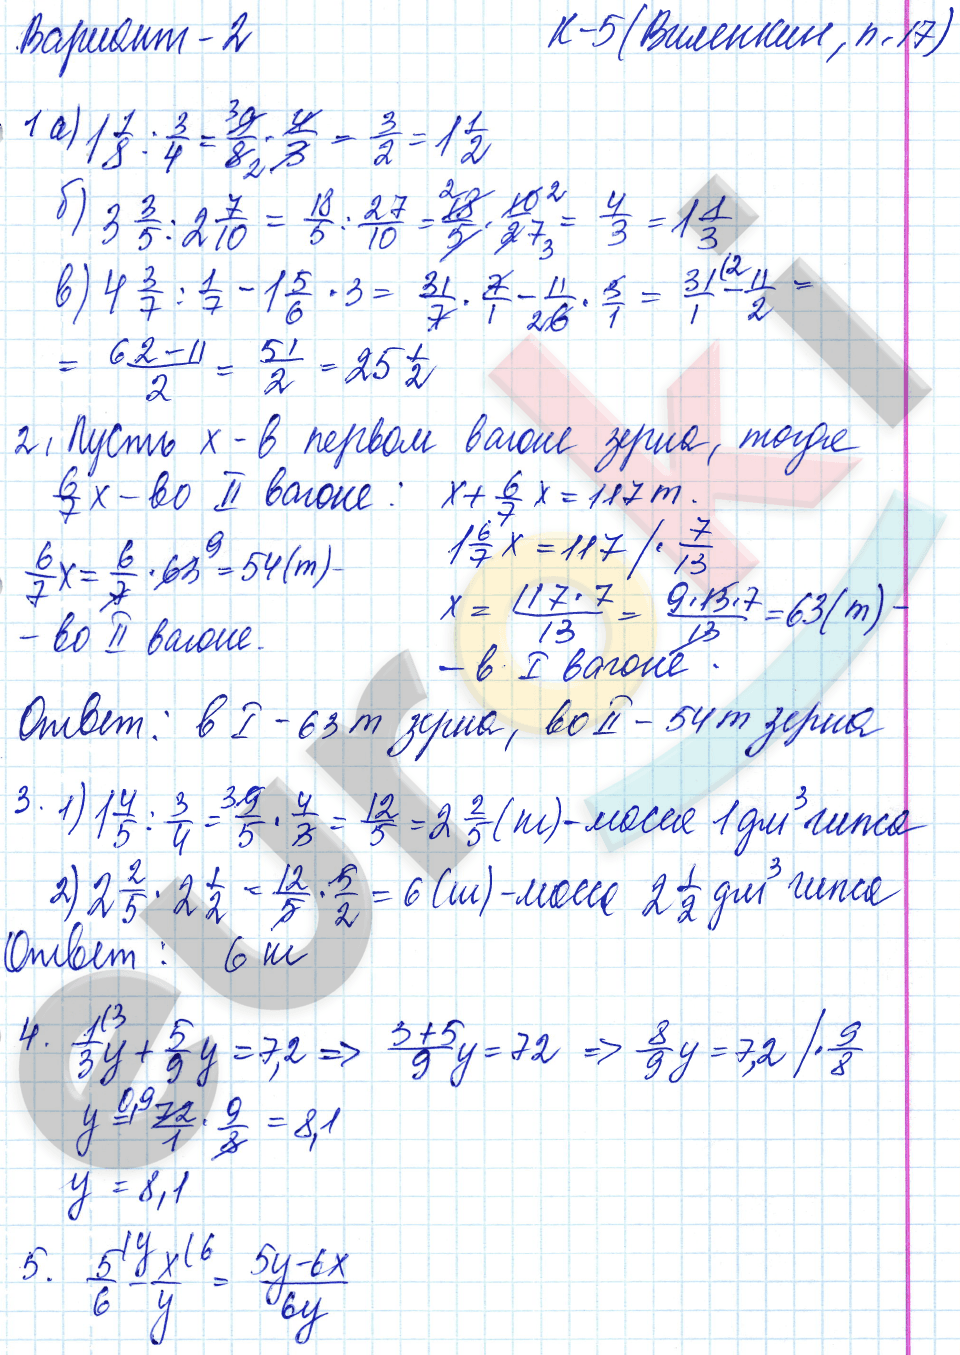 Вариант - 2 К-5 (Виленкин, п. 17)
1 а) 1 1/8 : 3/4 = 9/8 · 4/3 = 3/2 = 1 1/2
б) 3 3/5 : 2 7/10 = 18/5 : 27/10 = 18/5 · 10/27 = 4/3 = 1 1/3
в) 4 3/7 : 1/7 - 1 5/6 · 3 = 31/7 · 7/1 - 11/6 · 3/1 = 31/1 - 11/2 =
= 62-11/2 = 51/2 = 25 1/2
2. Пусть х - в первом вагоне зерна, тогда
6/7 х - во II вагоне : х + 6/7 х = 117 т.
1 6/7 х = 117 / · 7/13
6/7 х = 6/7 · 63 = 54 (т) -
х = 117·7/13 = 9·13·7/13 = 63 (т) -
- во II вагоне.
- в I вагоне.
Ответ: в I - 63 т зерна, во II - 54 т зерна
3. 1) 1 4/5 : 3/4 = 9/5 · 4/3 = 12/5 = 2 2/5 (кг) - масса 1 дм³ гипса
2) 2 2/5 · 2 1/2 = 12/5 · 5/2 = 6 (кг) - масса 2 1/2 дм³ гипса
Ответ: 6 кг
4. 1/3 у + 5/9 у = 7,2 => 3+5/9 у = 72 => 8/9 у = 7,2 / · 9/8
у = 72/1 · 9/8 = 8,1
у = 8,1
5. 5/6 - х/у = 5у-6х/6у
euroki